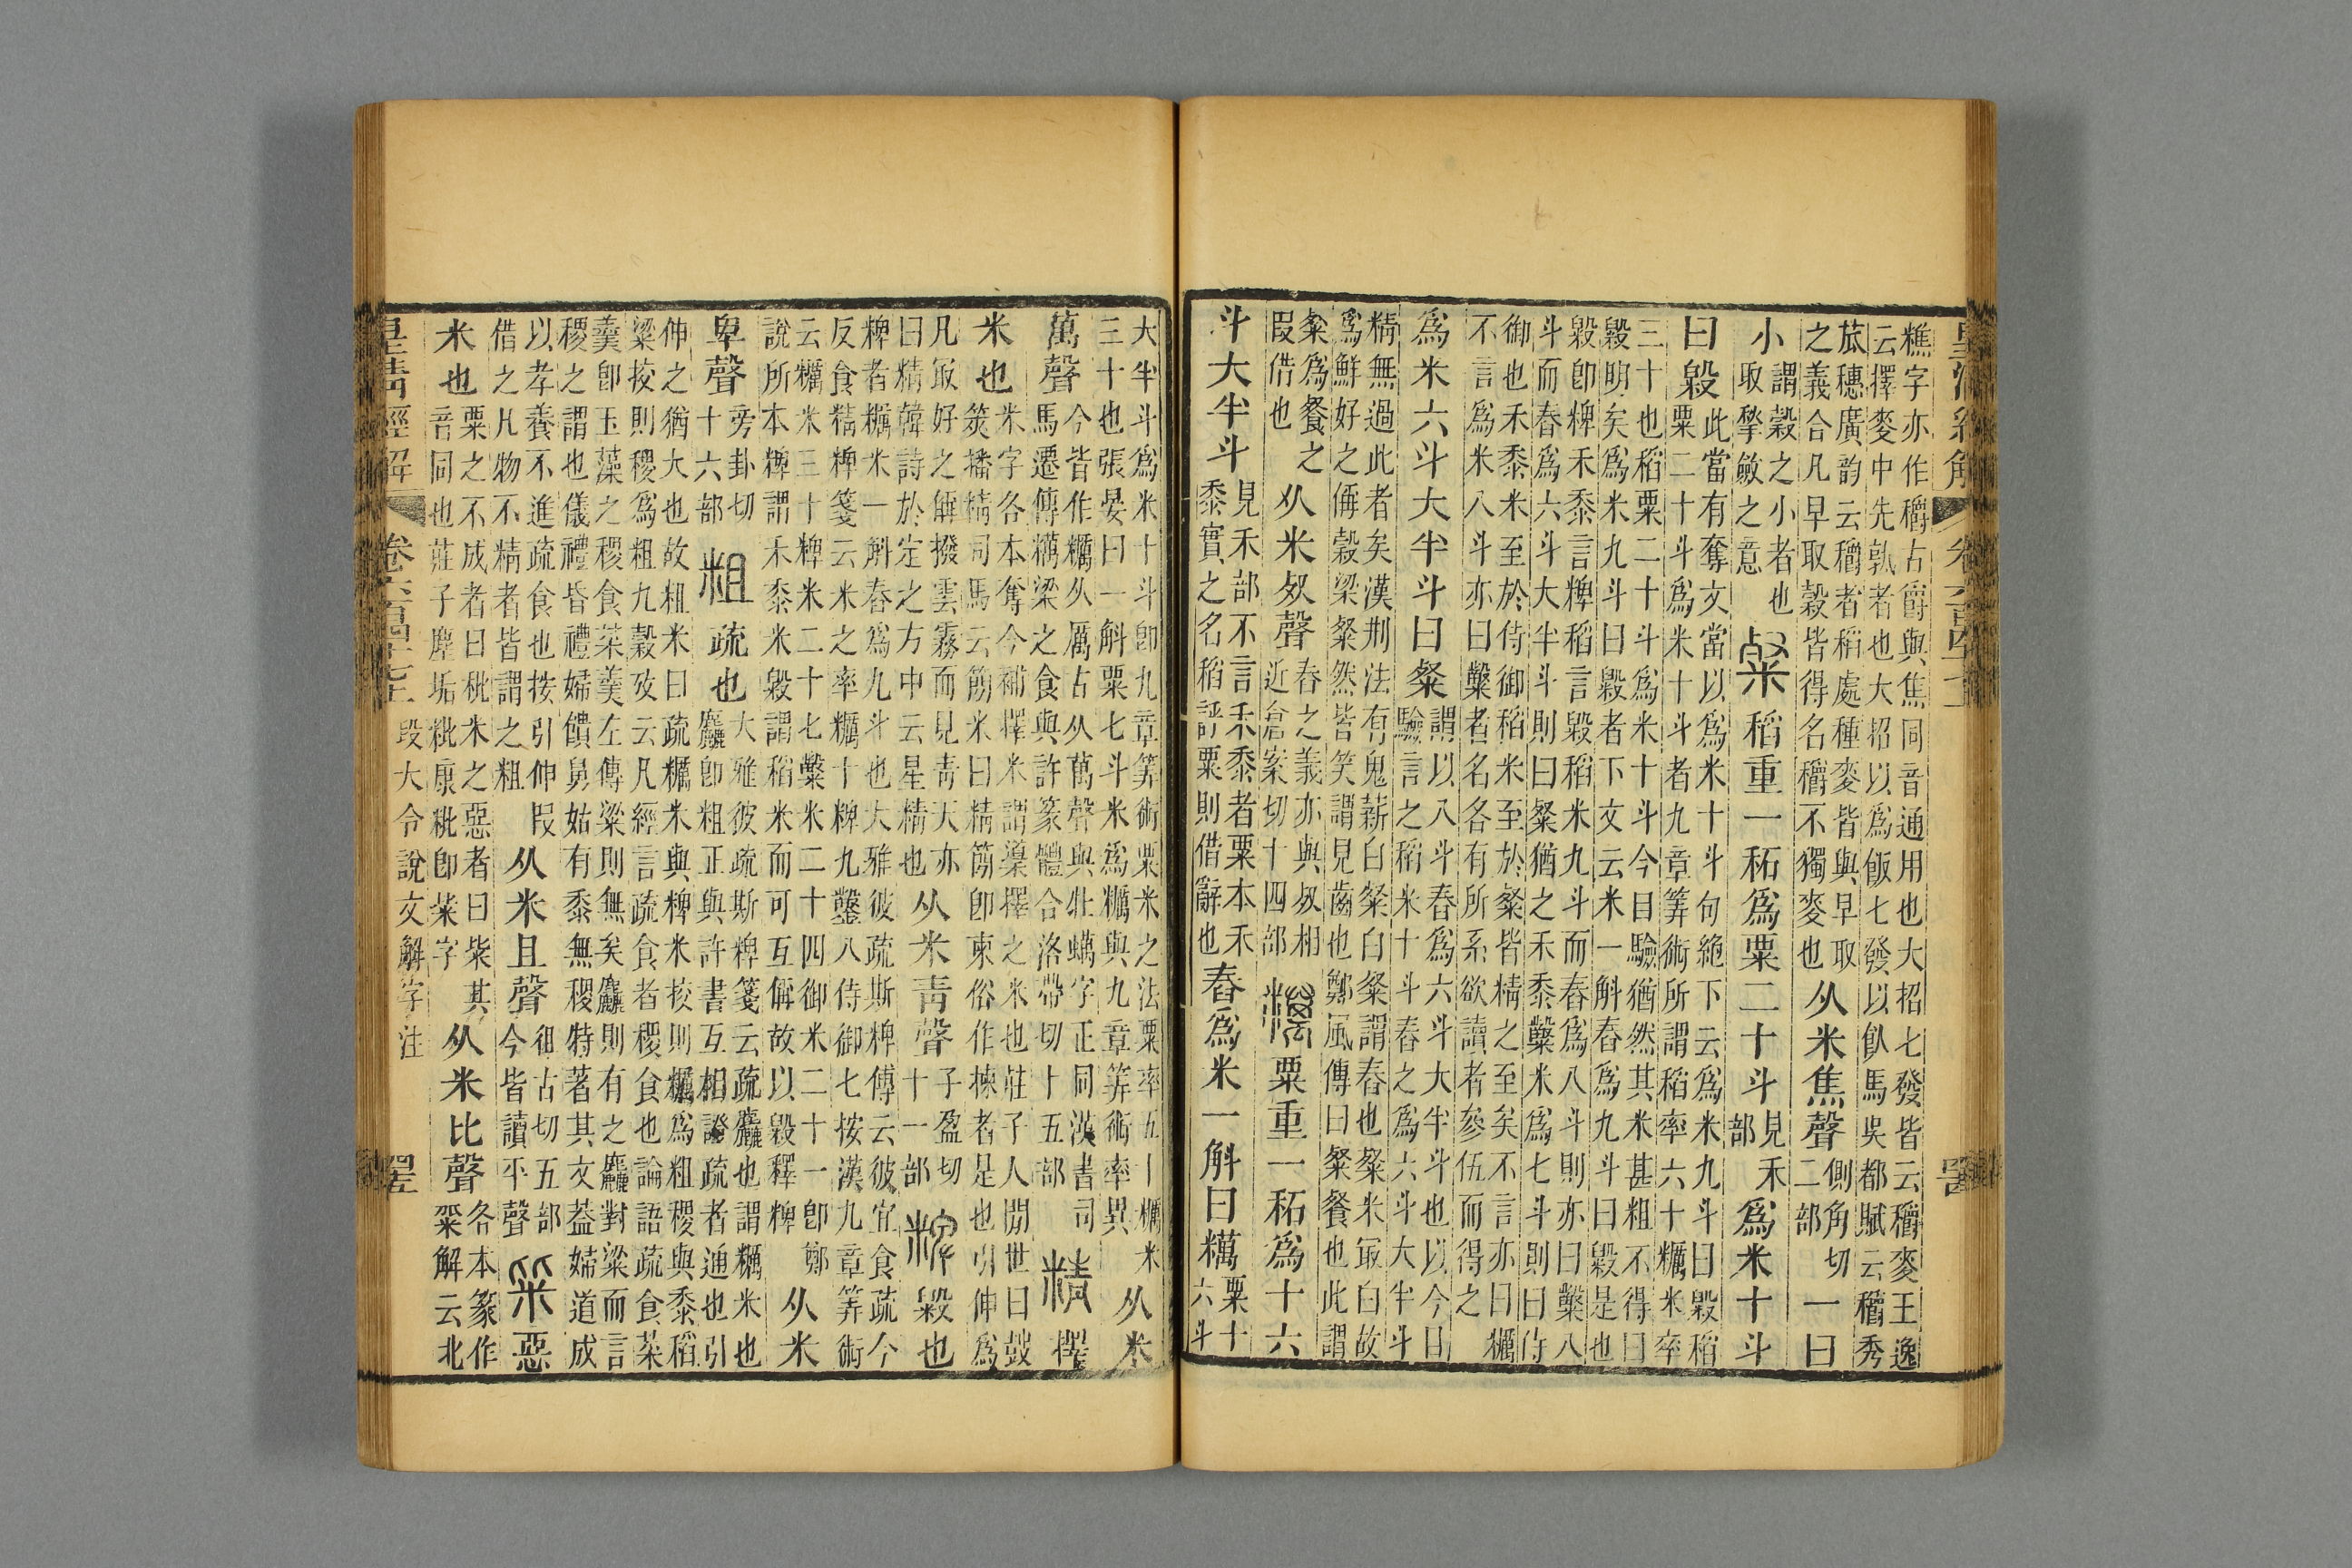 樵字亦作穛古爵與焦同音通用也大招七發皆云穛麥王逸
云擇麥中先孰者也大招以爲飯七發以飤馬吳都賦云穛秀
苽穗廣韵云穛者稻處種麥皆與早取之義合凡早取穀皆得名穛不獨麥也从米焦聲側角切二部一曰
小謂穀之小者也取揫斂之意稻重一䄷爲粟二十斗見禾部爲米十斗
曰毇此當有奪文當以爲米十斗句絶下云爲米九斗曰毇稻粟二十斗爲米十斗者九章筭術所謂稻率六十糲米率
三十也稻粟二十斗爲米十斗今目驗猶然其米甚粗不得曰
毇明矣爲米九斗曰毇者下文云米一斛舂爲九斗曰毇是也
毇卽粺禾黍言粺稻言毇稻米九斗而舂爲八斗則亦曰糳八
斗而舂爲六斗大半斗則曰粲猶之禾黍糳米爲七斗則曰侍
御也禾黍米至於侍御稻米至於粲皆精之至矣不言亦曰糲
不言爲米八斗亦曰糳者名各有所系欲讀者參伍而得之
爲米六斗大半斗曰粲謂以八斗舂爲六斗大半斗也以今目驗言之稻米十斗舂之爲六斗大半斗
精無過此者矣漢刑法有鬼薪白粲白粲謂舂也粲米㝡白故
爲鮮好之偁穀梁粲然皆笑謂見齒也鄭風傳曰粲餐也此謂
粲爲餐之叚借也从米𣦻聲舂之義亦與𣦻相近倉案切十四部糲粟重一䄷爲十六
斗大半斗見禾部不言禾黍者粟本禾黍實之名稻評粟則借辭也舂爲米一斛曰糲粟十六斗
大半斗爲米十斗卽九章筭術粟米之法粟率五十糲米
三十也張晏曰一斛粟七斗米爲糲與九章筭術率異从米
萬聲今皆作糲从厲古从萬聲與牡蠣字正同漢書司馬遷傳糲梁之食與許篆體合洛帶切十五部精擇
米也米字各本奪今補擇米謂䉶擇之米也莊子人閒世曰鼓筴播精司馬云簡米曰精簡卽柬俗作揀者是也引伸爲
凡㝡好之偁撥雲霧而見靑天亦曰精韓詩於定之方中云星精也从米靑聲子盈切十一部粺毇也
粺者糲米一斛舂爲九斗也大雅彼疏斯粺傳云彼宜食疏今
反食精粺箋云米之率糲十粺九鑿八侍御七按漢九章筭術
云糲米三十粺米二十七糳米二十四御米二十一卽鄭說所本粺謂禾黍米毇謂稻米而可互偁故以毇釋粺从米
卑聲旁卦切十六部粗疏也大雅彼疏斯粺箋云疏麤也謂糲米也麤卽粗正與許書互相證疏者通也引
伸之猶大也故粗米曰疏糲米與粺米挍則糲爲粗稷與黍稻
梁挍則稷爲粗九穀攷云凡經言疏食者稷食也論語疏食菜
羹卽玉藻之稷食菜羹左傳梁則無矣麤則有之麤對梁而言
稷之謂也儀禮昏禮婦饋舅姑有黍無稷特著其文葢婦道成
以孝養不進疏食也按引伸叚借之凡物不精者皆謂之粗从米且聲徂古切五部今皆讀平聲粊惡
米也粟之不成者曰秕米之惡者曰粊其音同也莊子塵垢粃康粃卽粊字从米比聲各本篆作粊解云北
皇淸經解
卷六百四十七上
段大令說文解字注